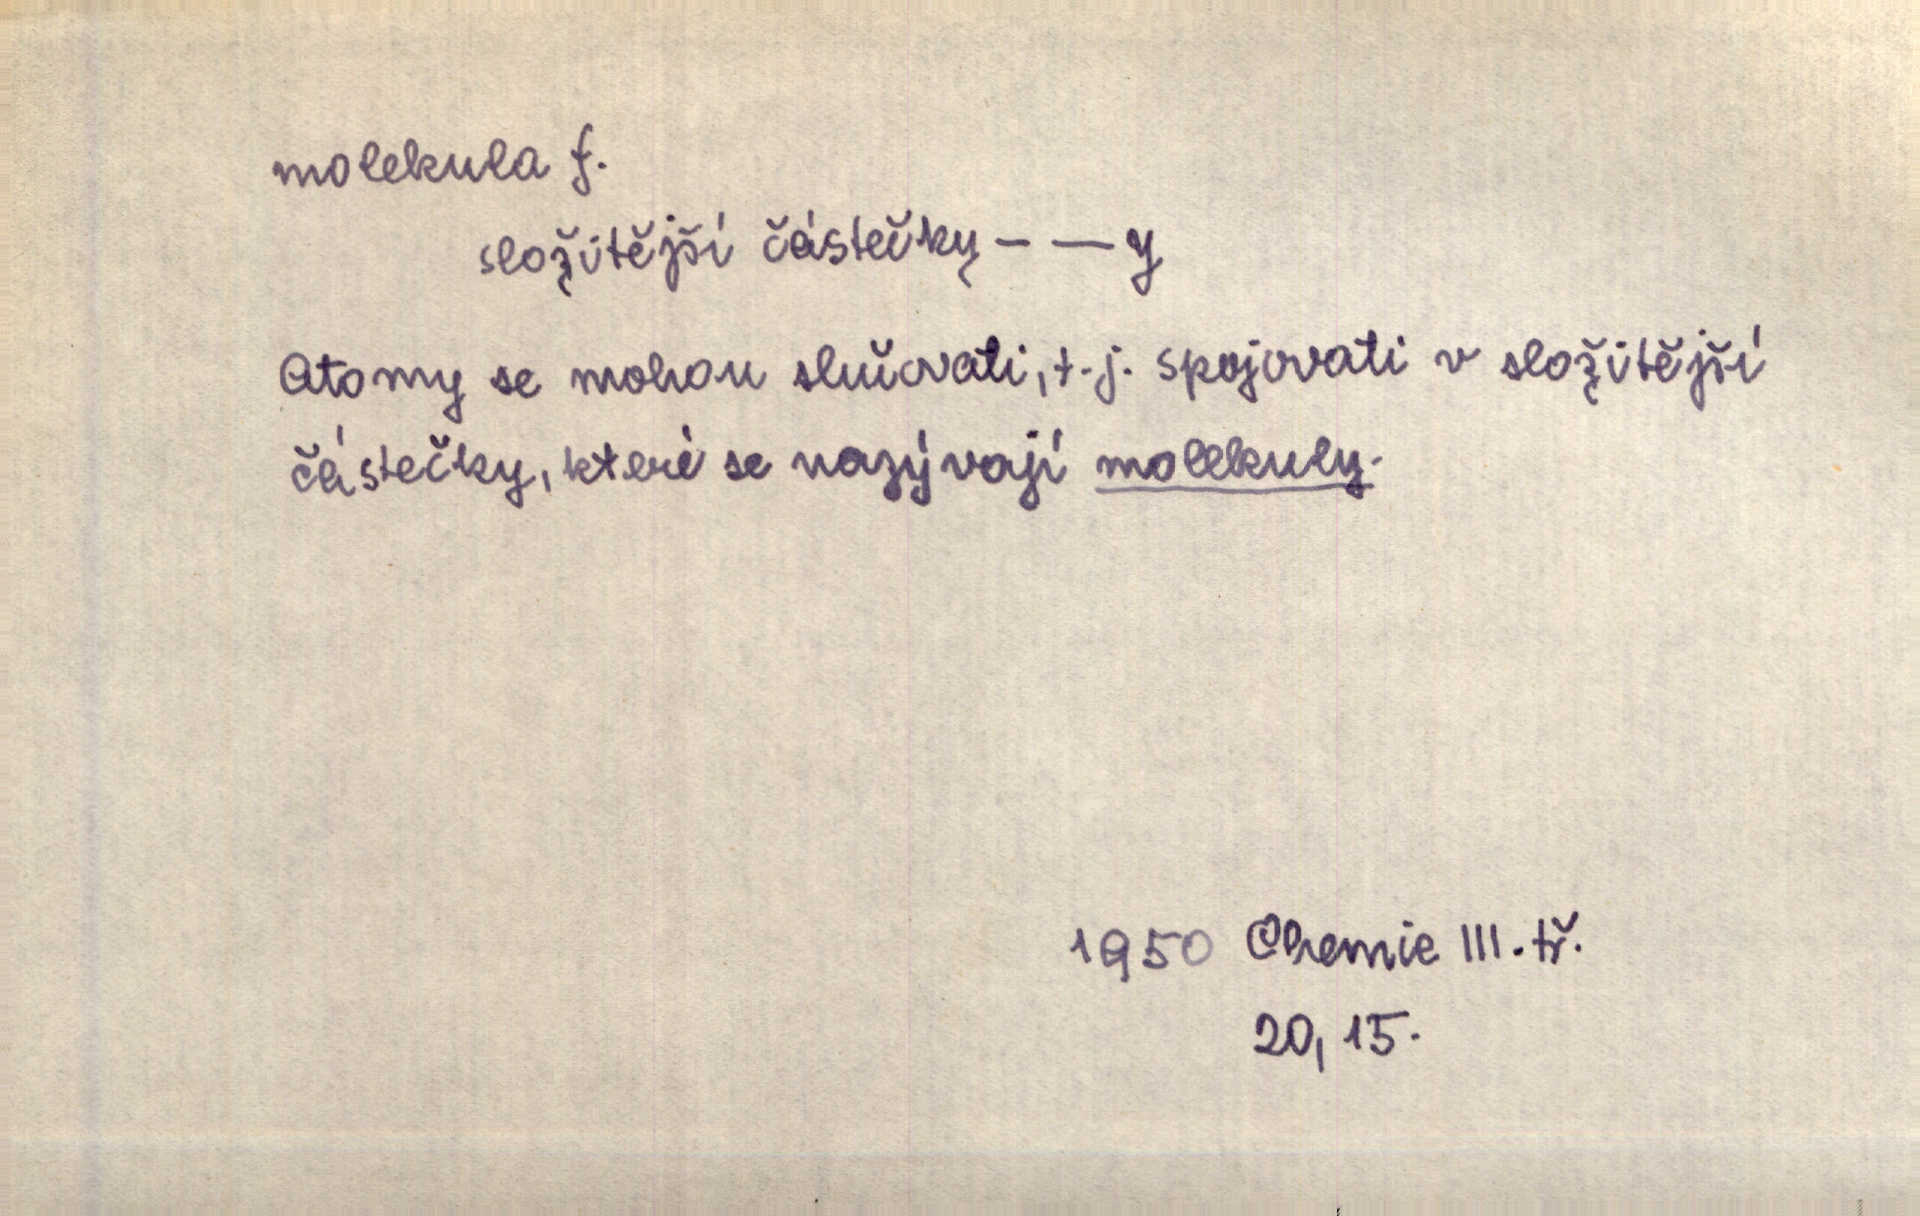 molekula f.
složitější částečky – — y
Atomy se mohou slučovati, t.j. spojovati v složitější
částečky, které se nazývají molekuly.
1950 Chemie III. tř.
20, 15.